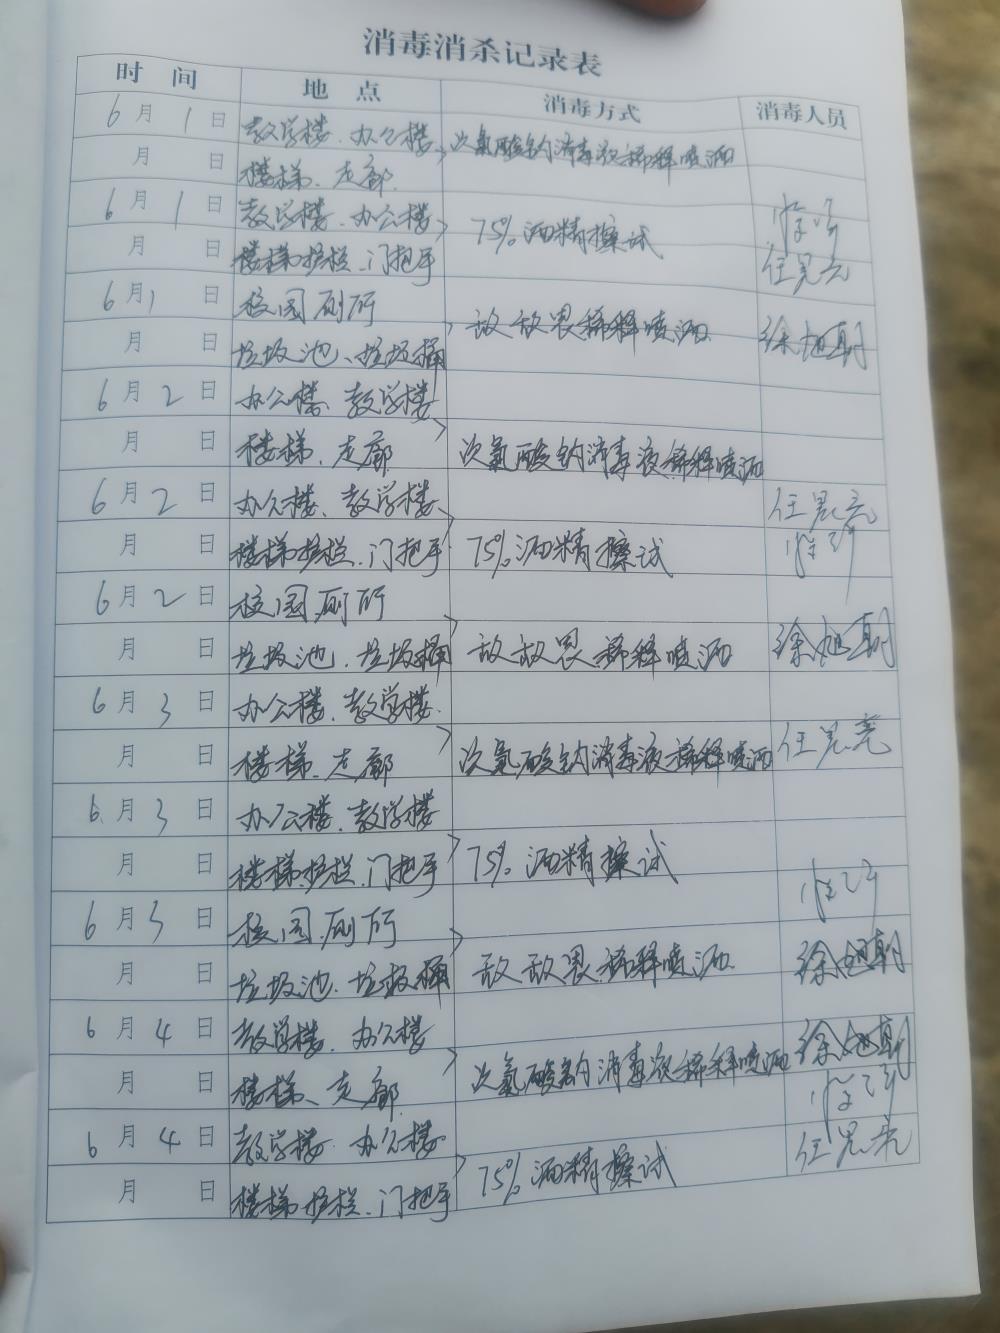 消毒消杀记录表
时 间 地 点 消毒方式 消毒人员
6月1日 教学楼、办公楼、 次氯酸钠消毒液稀释喷洒
月 日 楼梯、走廊
6月1日 教学楼、办公楼 75%酒精擦试
月 日 楼梯护栏、门把手
6月1日 校园厕所 敌敌畏稀释喷洒
月 日 垃圾池、垃圾桶 徐旭朝
6月2日 办公楼、教学楼
月 日 楼梯、走廊 次氯酸钠消毒液稀释喷洒
6月2日 办公楼、教学楼、
月 日 楼梯护栏、门把手 75%酒精擦试
6月2日 校园厕所
月 日 垃圾池、垃圾桶 敌敌畏稀释喷洒 徐旭朝
6月3日 办公楼、教学楼
月 日 楼梯、走廊 次氯酸钠消毒液稀释喷洒
6月3日 办公楼、教学楼
月 日 楼梯护栏、门把手 75%酒精擦试
6月3日 校园厕所
月 日 垃圾池、垃圾桶 敌敌畏稀释喷洒 徐旭朝
6月4日 教学楼、办公楼 徐旭朝
月 日 楼梯、走廊 次氯酸钠消毒液稀释喷洒
6月4日 教学楼、办公楼
月 日 楼梯护栏、门把手 75%酒精擦试